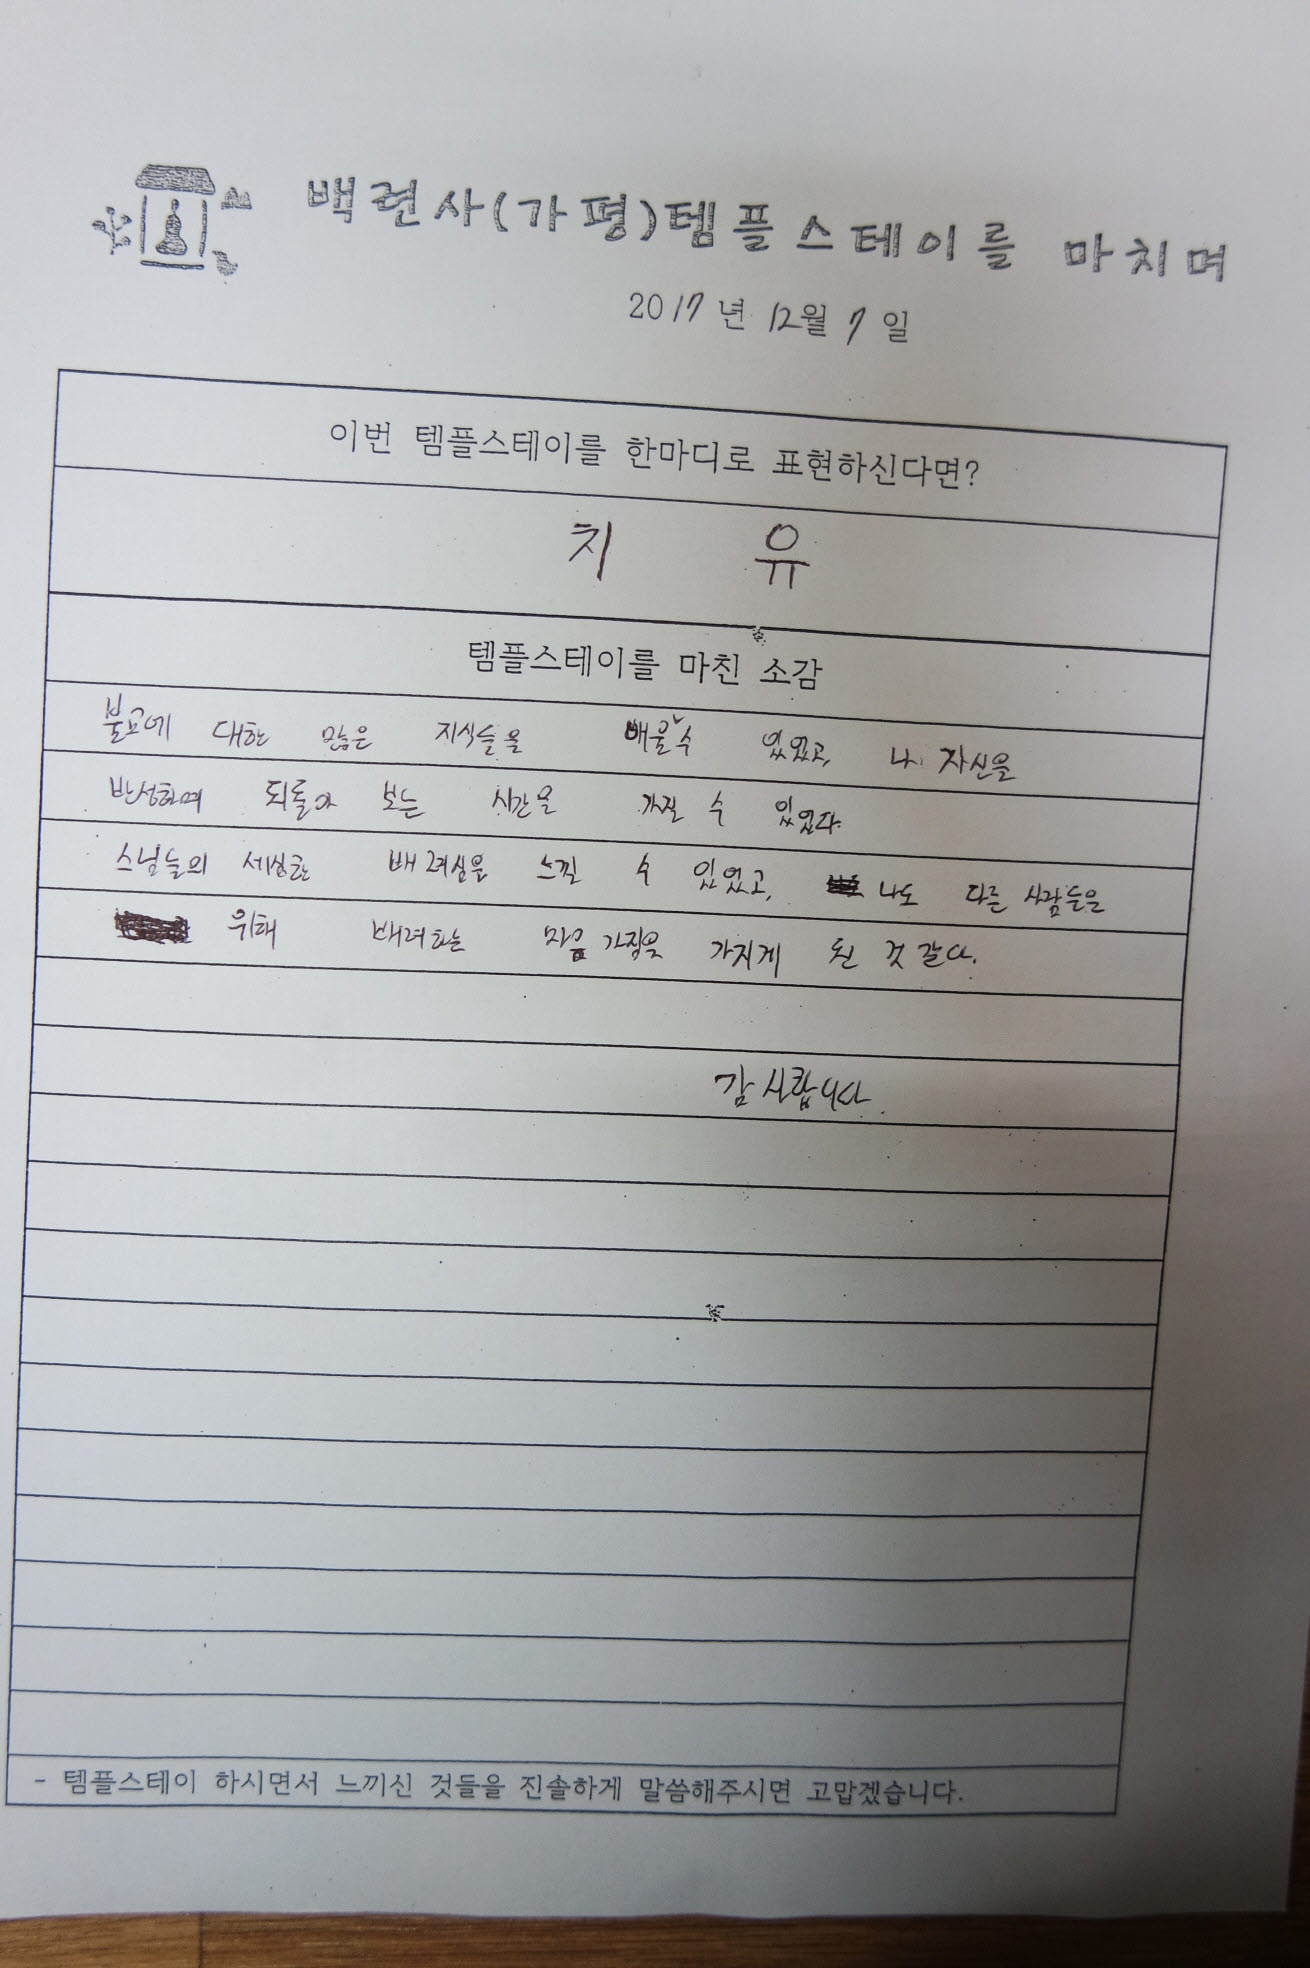 백련사(가평)템플스테이를 마치며
2017년 12월 7일
이번 템플스테이를 한마디로 표현하신다면?
치 유
템플스테이를 마친 소감
불교에 대한 많은 지식들을 배울수 있었고, 나 자신을
반성하며 되돌아 보는 시간을 가질 수 있었다.
스님들의 세심한 배려심을 느낄 수 있었고, 나도 다른 사람들을
위해 배려하는 마음가짐을 가지게 된 것 같다.
감사합니다
- 템플스테이 하시면서 느끼신 것들을 진솔하게 말씀해주시면 고맙겠습니다.